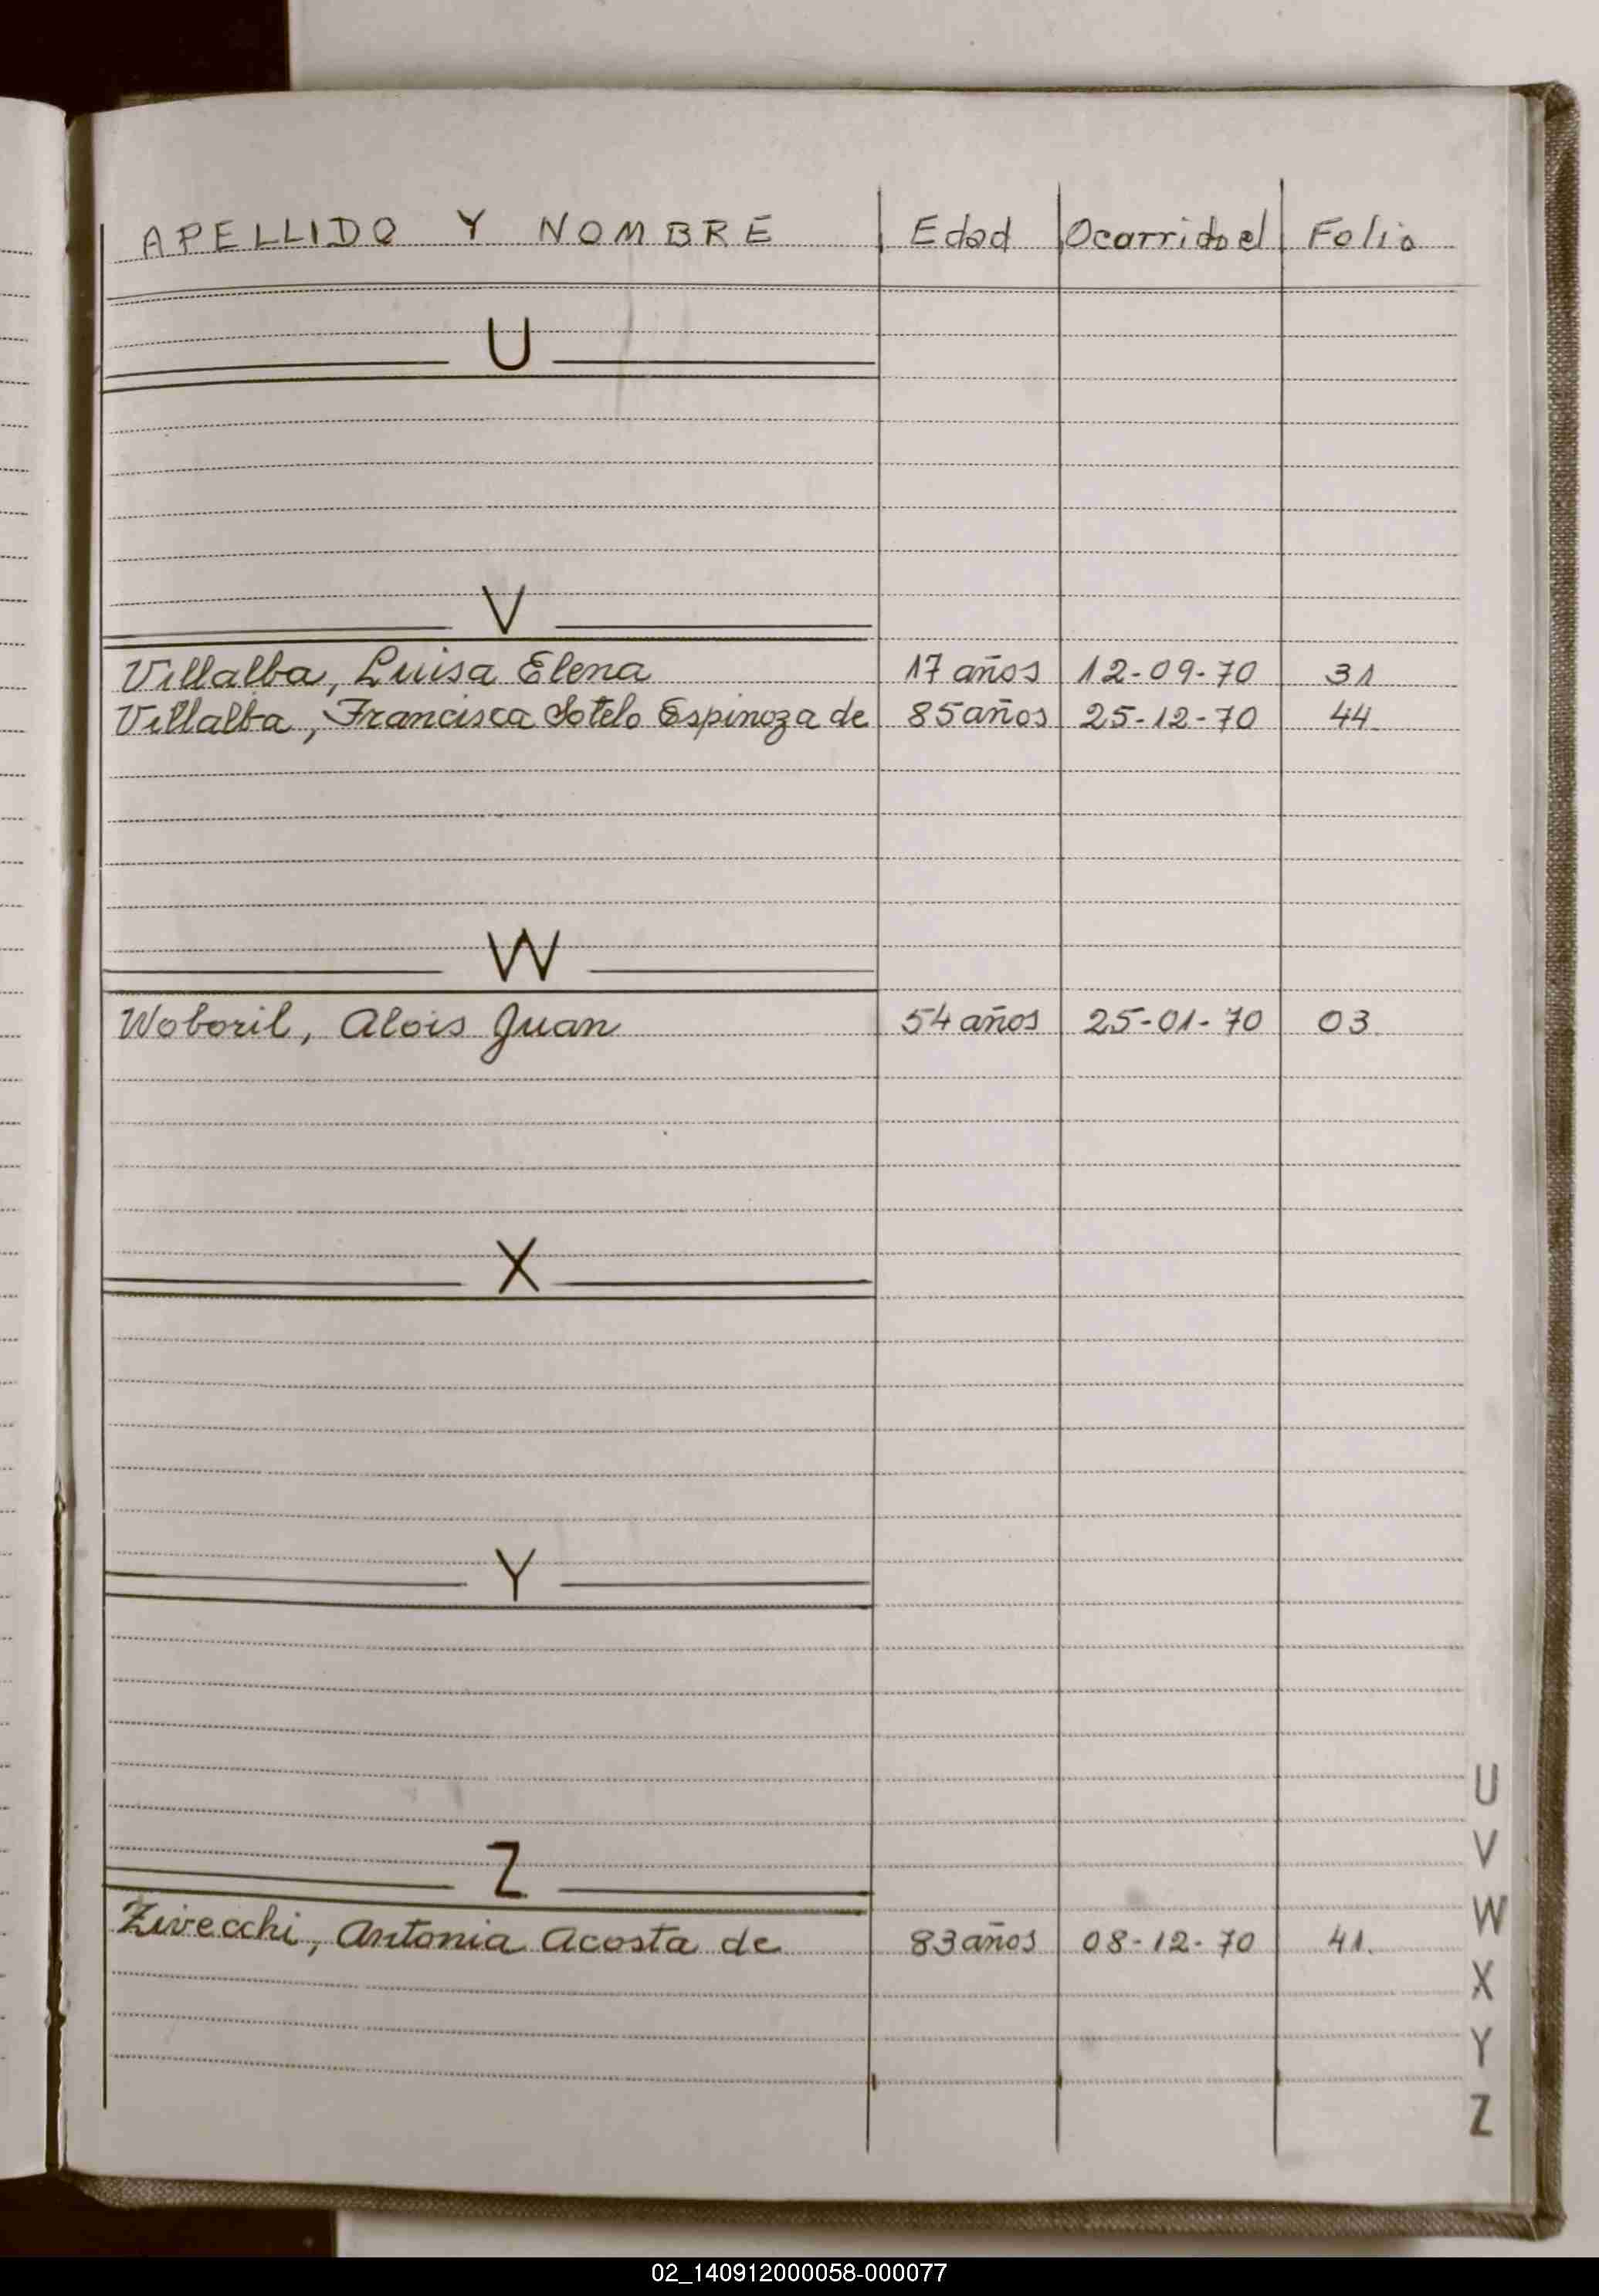 APELLIDO Y NOMBRE Edad Ocurrido el Folio
U
V
Villalba, Luisa Elena 17 años 12-09-70 31
Villalba, Francisca Sotelo Espinoza de 85 años 25-12-70 44.
W
Woboril, Alois Juan 54 años 25-01-70 03.
X
Y
Z
Zivecchi, Antonia Acosta de 83 años 08-12-70 41.
U
V
W
X
Y
Z
02_140912000058-000077